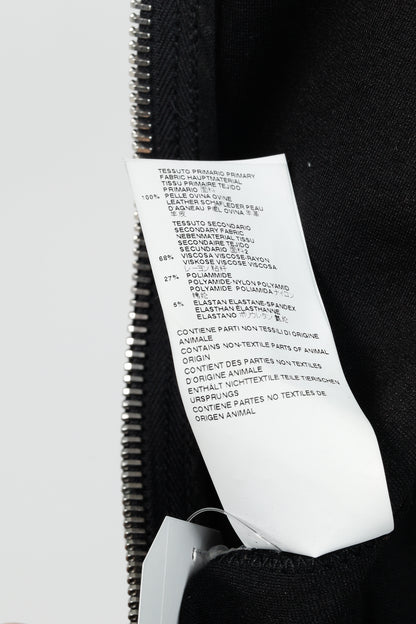 TESSUTO PRIMARIO PRIMARY
FABRIC HAUPTMATERIAL
TISSU PRIMAIRE TEJIDO
PRIMARIO 面料
100% PELLE OVINA OVINE
LEATHER SCHAFLEDER PEAU
D'AGNEAU PIEL OVINA 羊革
羊皮
TESSUTO SECONDARIO
SECONDARY FABRIC
NEBENMATERIAL TISSU
SECONDAIRE TEJIDO
SECUNDARIO 面料2
68% VISCOSA VISCOSE-RAYON
VISKOSE VISCOSE VISCOSA
レーヨン 粘纤
27% POLIAMMIDE
POLYAMIDE-NYLON POLYAMID
POLYAMIDE POLIAMIDA ナイロン
锦纶
5% ELASTAN ELASTANE-SPANDEX
ELASTHAN ELASTHANNE
ELASTANO ポリウレタン 氨纶
CONTIENE PARTI NON TESSILI DI ORIGINE
ANIMALE
CONTAINS NON-TEXTILE PARTS OF ANIMAL
ORIGIN
CONTIENT DES PARTIES NON TEXTILES
D'ORIGINE ANIMALE
ENTHÄLT NICHTTEXTILE TEILE TIERISCHEN
URSPRUNGS
CONTIENE PARTES NO TEXTILES DE
ORIGEN ANIMAL